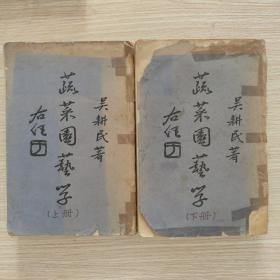 吴耕民著
蔬菜园艺学
右任
(上册)
吴耕民著
蔬菜园艺学
右任
(下册)